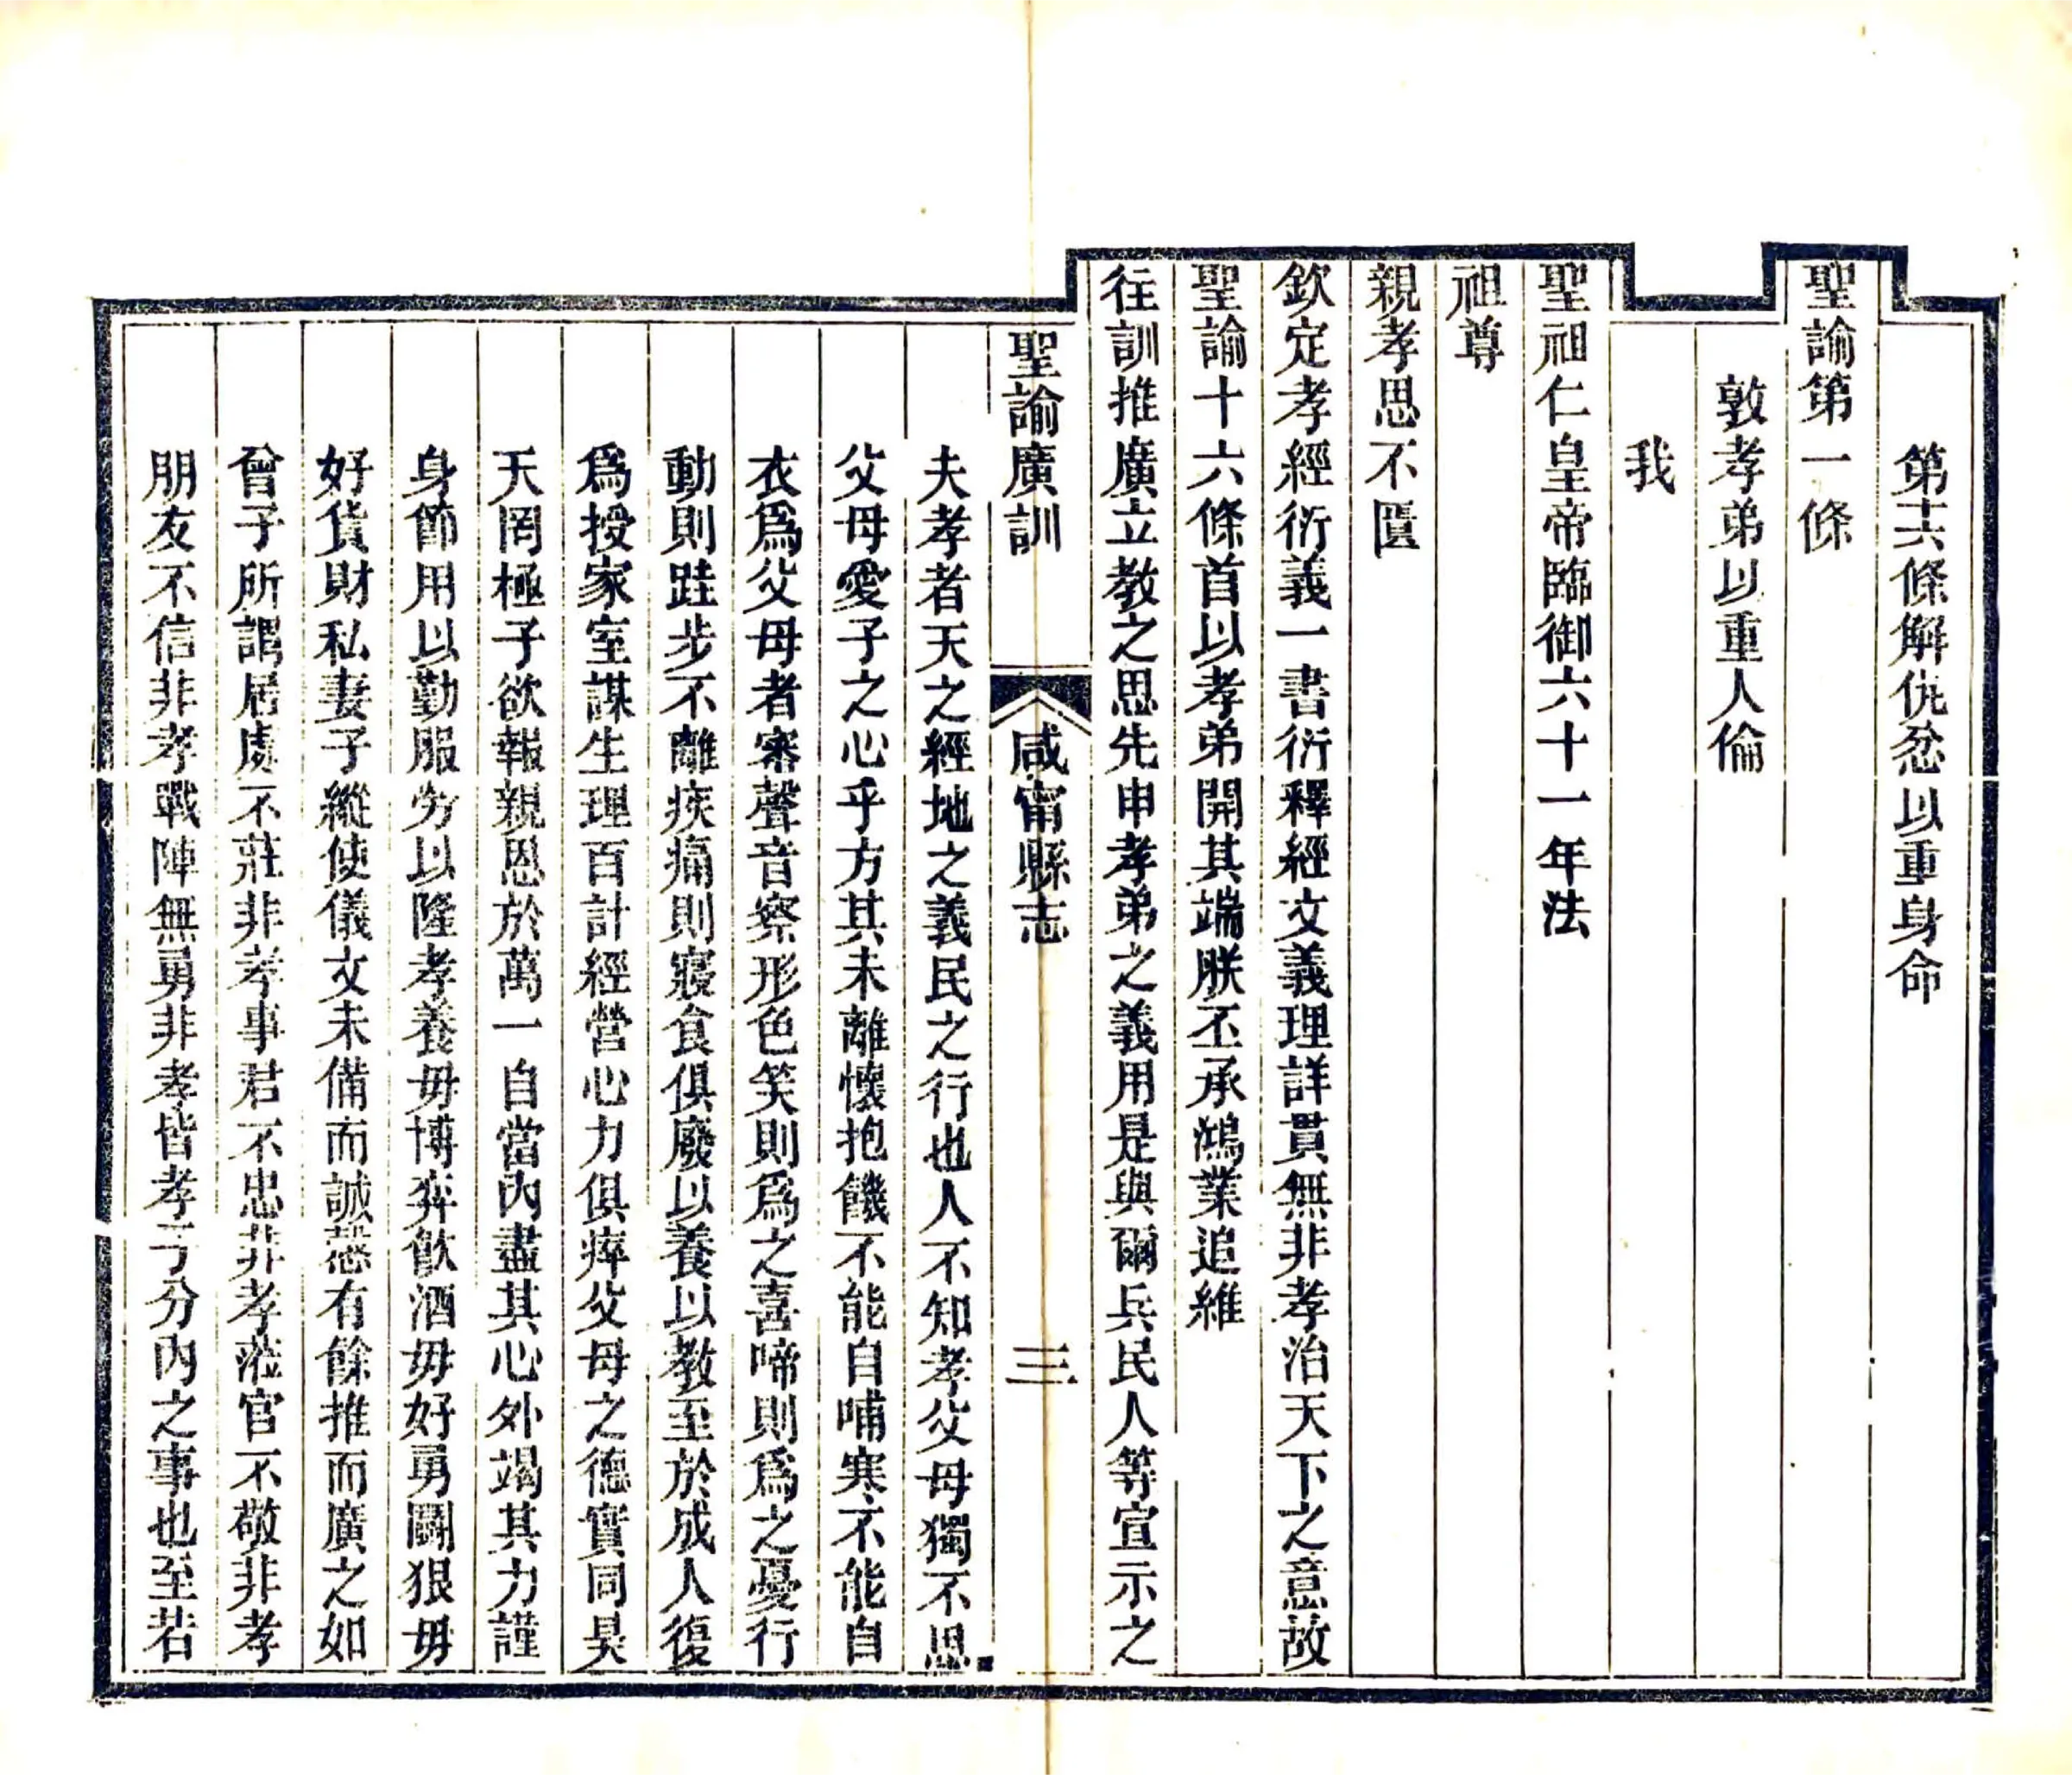 第十六條解仇忿以重身命
聖諭第一條
敦孝弟以重人倫
我
聖祖仁皇帝臨御六十一年法
祖尊
親孝思不匱
欽定孝經衍義一書衍釋經文義理詳貫無非孝治天下之意故
聖諭十六條首以孝弟開其端朕丕承鴻業追維
往訓推廣立教之思先申孝弟之義用是與爾兵民人等宣示之
聖諭廣訓
咸甯縣志
三
夫孝者天之經地之義民之行也人不知孝父母獨不思
父母愛子之心乎方其未離懷抱饑不能自哺寒不能自
衣爲父母者審聲音察形色笑則爲之喜啼則爲之憂行
動則跬步不離疾痛則寢食俱廢以養以教至於成人復
爲授家室謀生理百計經營心力俱瘁父母之德實同昊
天罔極子欲報親恩於萬一自當內盡其心外竭其力謹
身節用以勤服勞以隆孝養毋博弈飮酒毋好勇鬭狠毋
好貨財私妻子縱使儀文未備而誠慤有餘推而廣之如
曾子所謂居處不莊非孝事君不忠非孝蒞官不敬非孝
朋友不信非孝戰陣無勇非孝皆孝子分內之事也至若